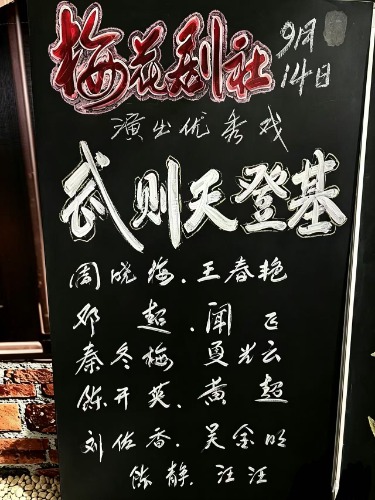 梅花剧社
9月
14日
演出优秀戏
武则天登基
周晓梅、王春艳
邓 超、闻 飞
秦冬梅 夏光云
陈开英、黄 超
刘佑香、吴金明
陈静、汪汪